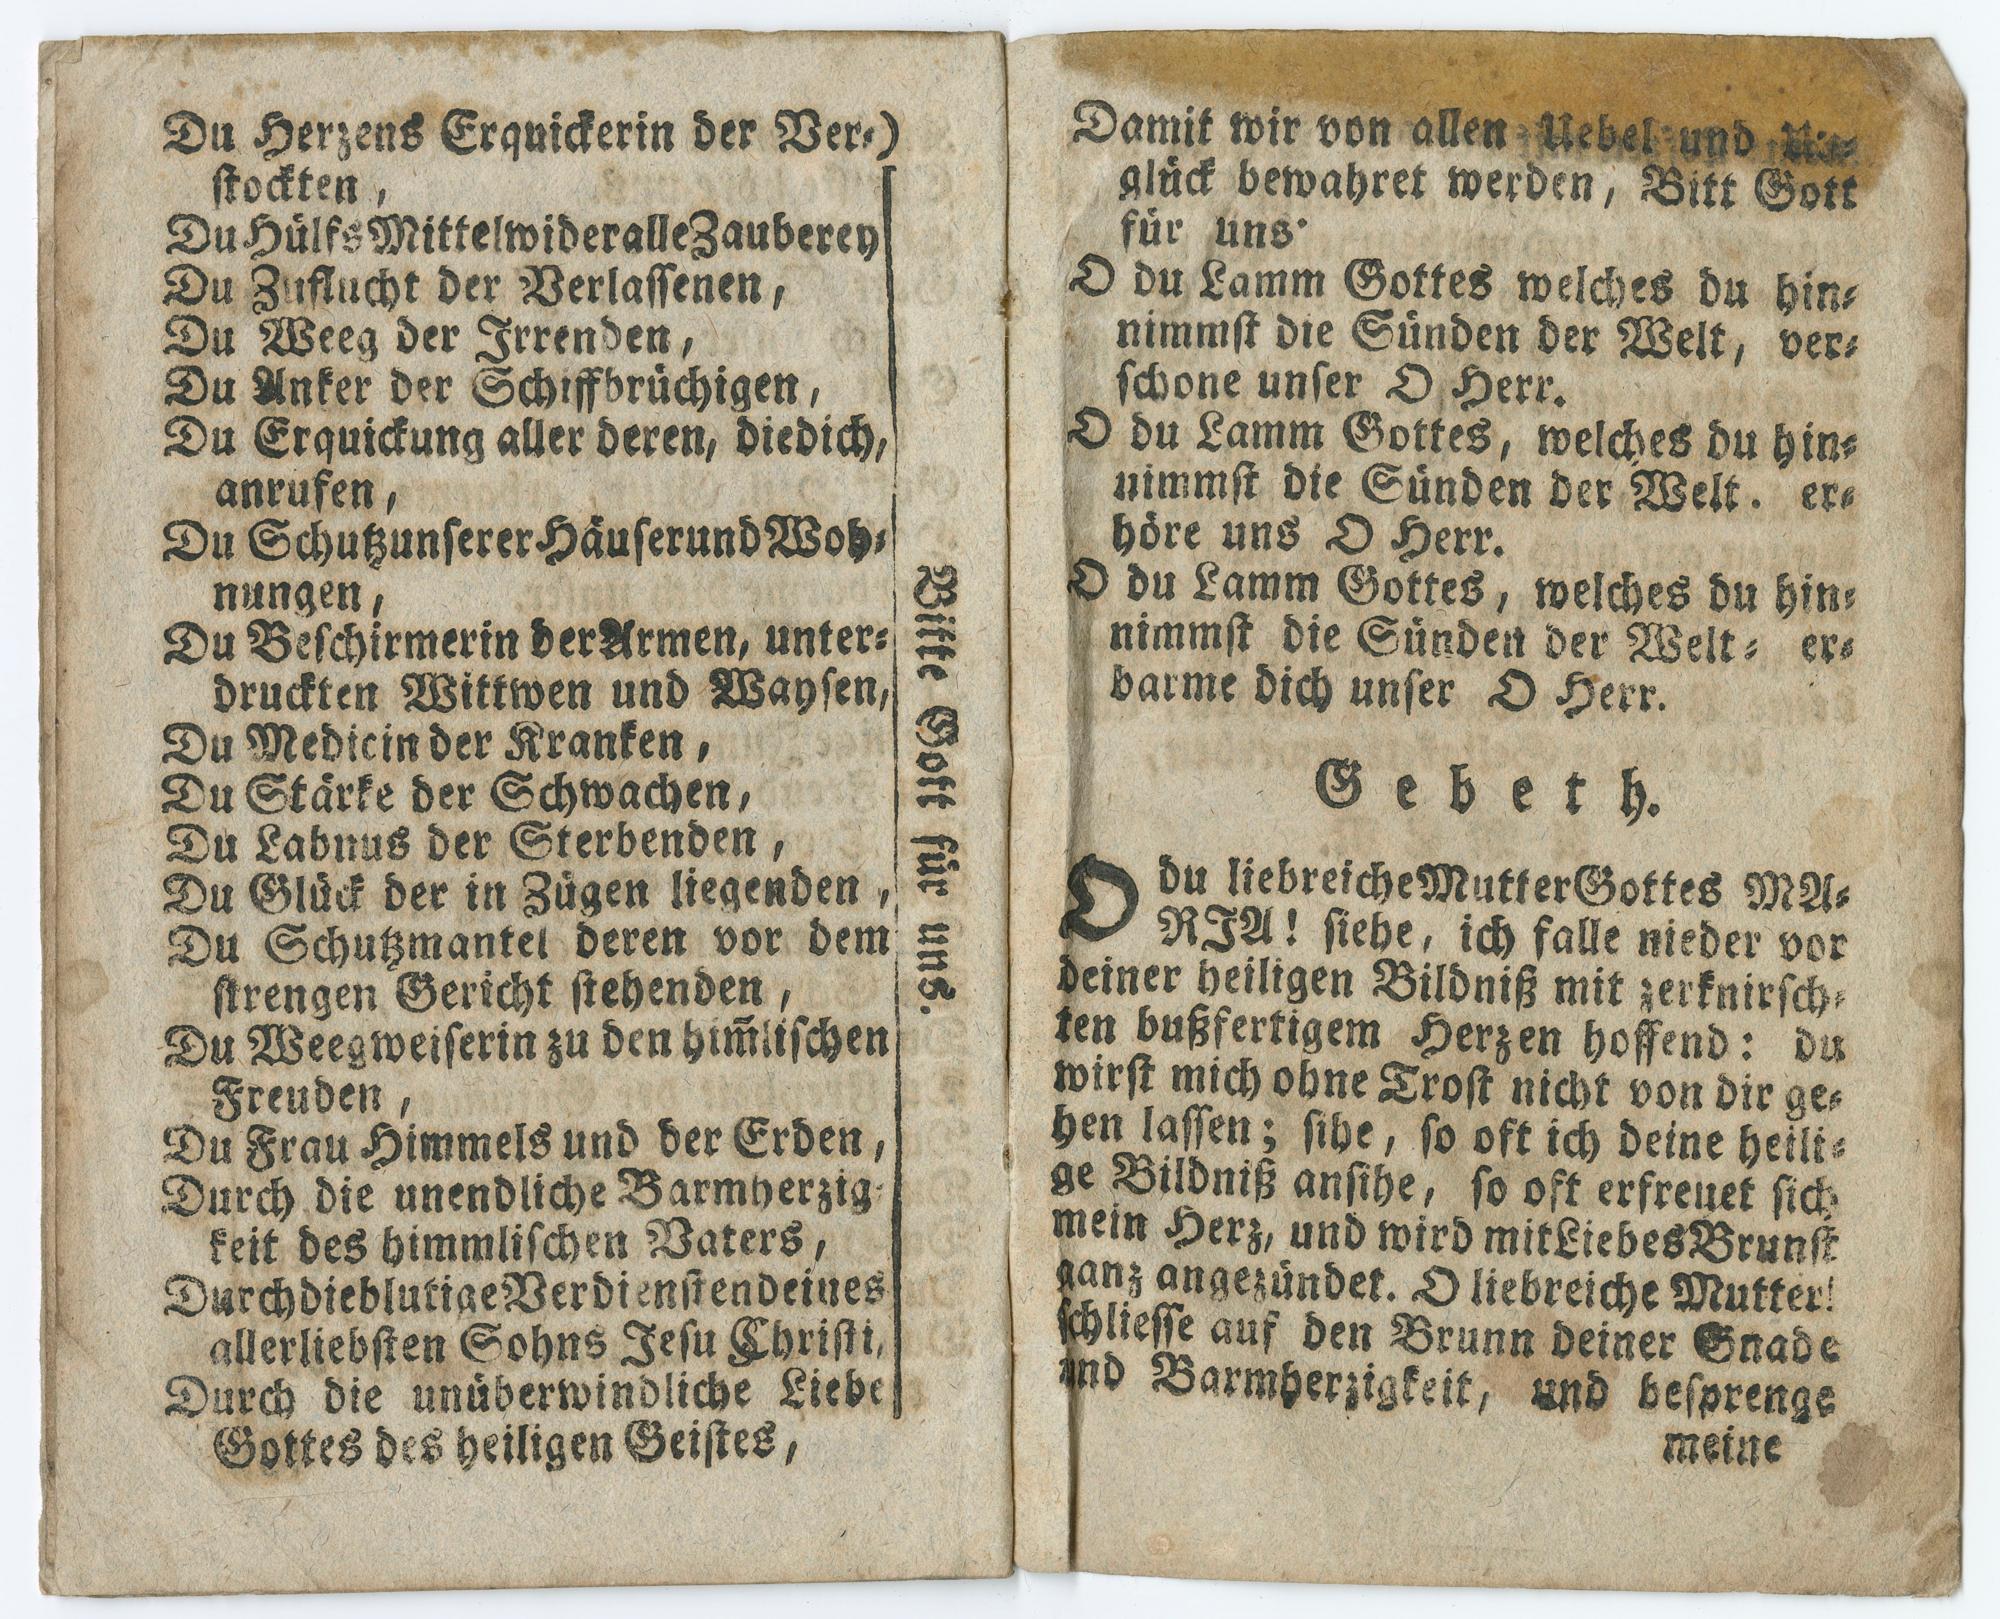 Du Herzens Erquickerin der Ver⸗)
stockten,
Du Hülfs Mittel wider alle Zauberey
Du Zuflucht der Verlassenen,
Du Weeg der Irrenden,
Du Anker der Schiffbrüchigen,
Du Erquickung aller deren, die dich,
anrufen,
Du Schutz unserer Häuser und Woh⸗
nungen,
Du Beschirmerin der Armen, unter⸗
druckten Wittwen und Waysen,
Du Medicin der Kranken,
Du Stärke der Schwachen,
Du Labnus der Sterbenden,
Du Glück der in Zügen liegenden,
Du Schutzmantel deren vor dem
strengen Gericht stehenden,
Du Weegweiserin zu den him̄lischen
Freuden,
Du Frau Himmels und der Erden,
Durch die unendliche Barmherzig⸗
keit des himmlischen Vaters,
Durch die blutige Verdiensten deines
allerliebsten Sohns Jesu Christi,
Durch die unüberwindliche Liebe
Gottes des heiligen Geistes,
Bitte Gott für uns.
Damit wir von allen Uebel und Un⸗
glück bewahret werden, Bitt Gott
für uns·
O du Lamm Gottes welches du hin⸗
nimmst die Sünden der Welt, ver⸗
schone unser O Herr.
O du Lamm Gottes, welches du hin⸗
nimmst die Sünden der Welt. er⸗
höre uns O Herr.
O du Lamm Gottes, welches du hin⸗
nimmst die Sünden der Welt⸗ er⸗
barme dich unser O Herr.
Gebeth.
O du liebreiche Mutter Gottes MA⸗
RJA! siehe, ich falle nieder vor
deiner heiligen Bildniß mit zerknirsch⸗
ten bußfertigem Herzen hoffend: du
wirst mich ohne Trost nicht von dir ge⸗
hen lassen; sihe, so oft ich deine heili⸗
ge Bildniß ansihe, so oft erfreuet sich
mein Herz, und wird mit Liebes Brunst
ganz angezündet. O liebreiche Mutter!
schliesse auf den Brunn deiner Gnade
und Barmherzigkeit, und besprenge
meine